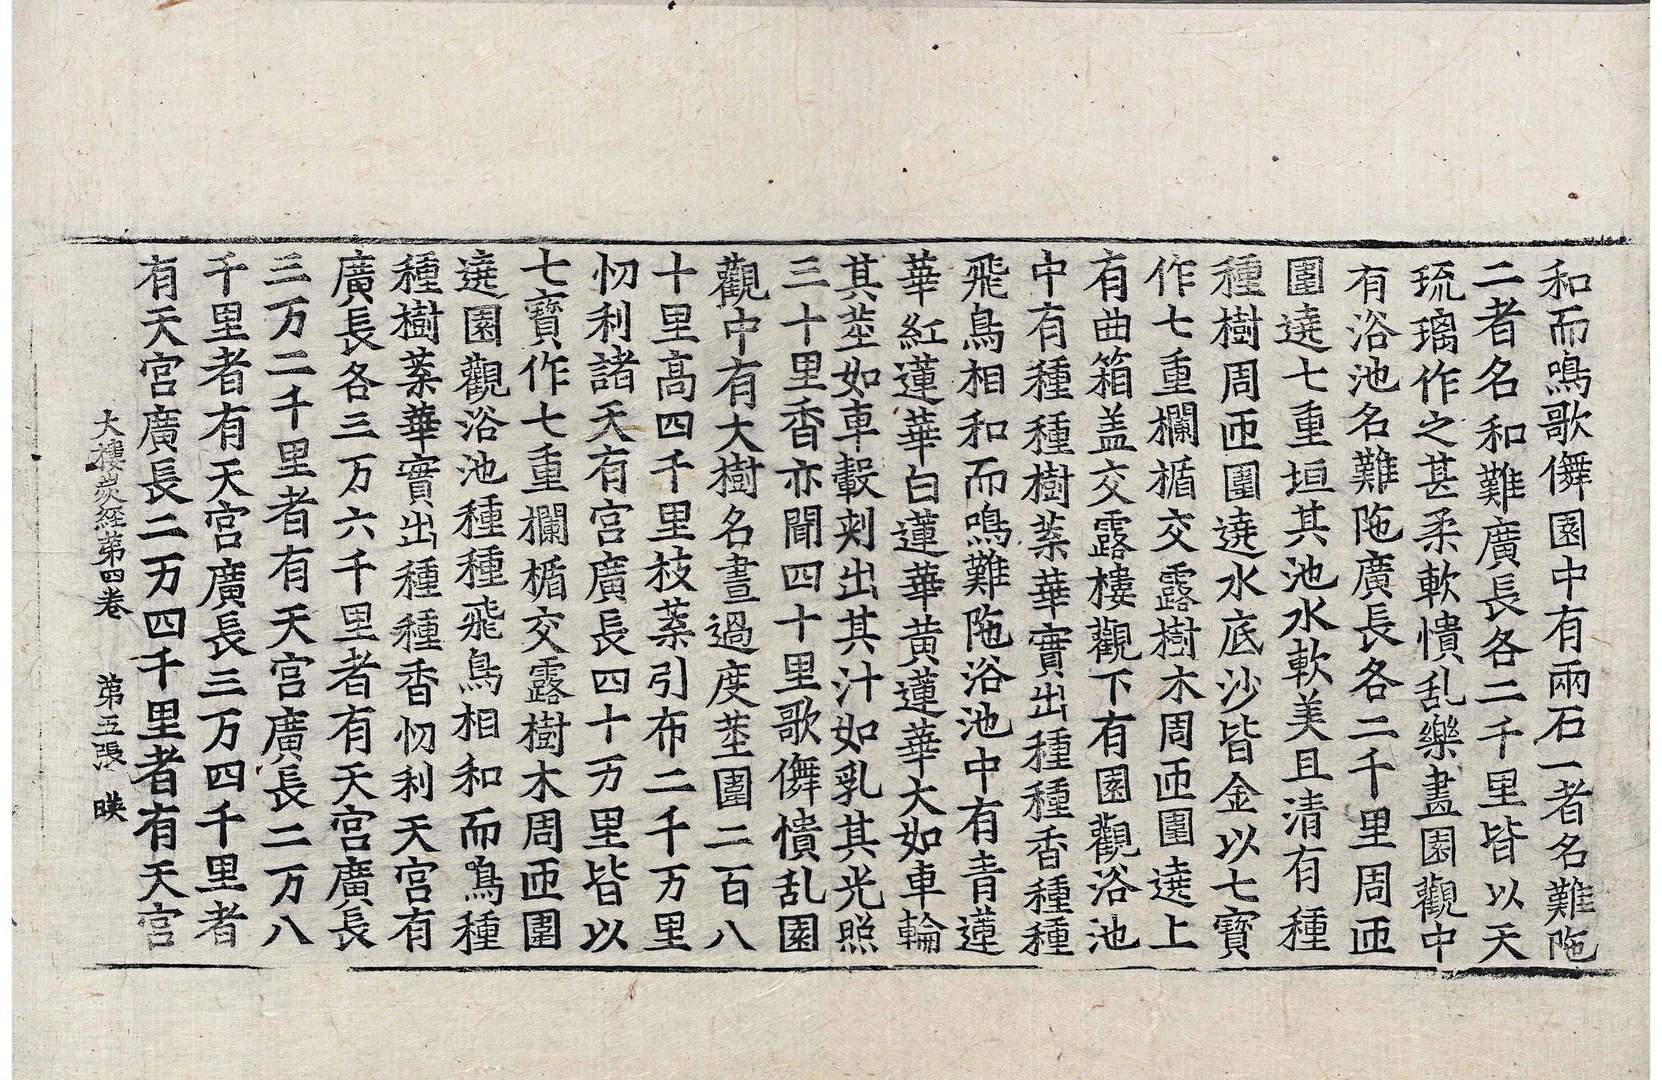 和而鳴歌儛園中有兩石一者名難陁
二者名和難廣長各二千里皆以天
琉璃作之甚柔軟憒乱樂畫園觀中
有浴池名難陁廣長各二千里周匝
圍遶七重垣其池水軟美且清有種
種樹周匝圍遶水底沙皆金以七寶
作七重欄楯交露樹木周匝圍遶上
有曲箱盖交露樓觀下有園觀浴池
中有種種樹葉華實出種種香種種
飛鳥相和而鳴難陁浴池中有青蓮
華紅蓮華白蓮華黄蓮華大如車輪
其莖如車轂刾出其汁如乳其光照
三十里香亦聞四十里歌儛憒乱園
觀中有大樹名晝過度莖圍二百八
十里高四千里枝葉引布二千万里
忉利諸天有宮廣長四十万里皆以
七寶作七重欄楯交露樹木周匝圍
遶園觀浴池種種飛鳥相和而鳴種
種樹葉華實出種種香忉利天宮有
廣長各三万六千里者有天宮廣長
三万二千里者有天宮廣長二万八
千里者有天宮廣長三万四千里者
有天宮廣長二万四千里者有天宮
大樓炭経苐四卷 苐五張 暎